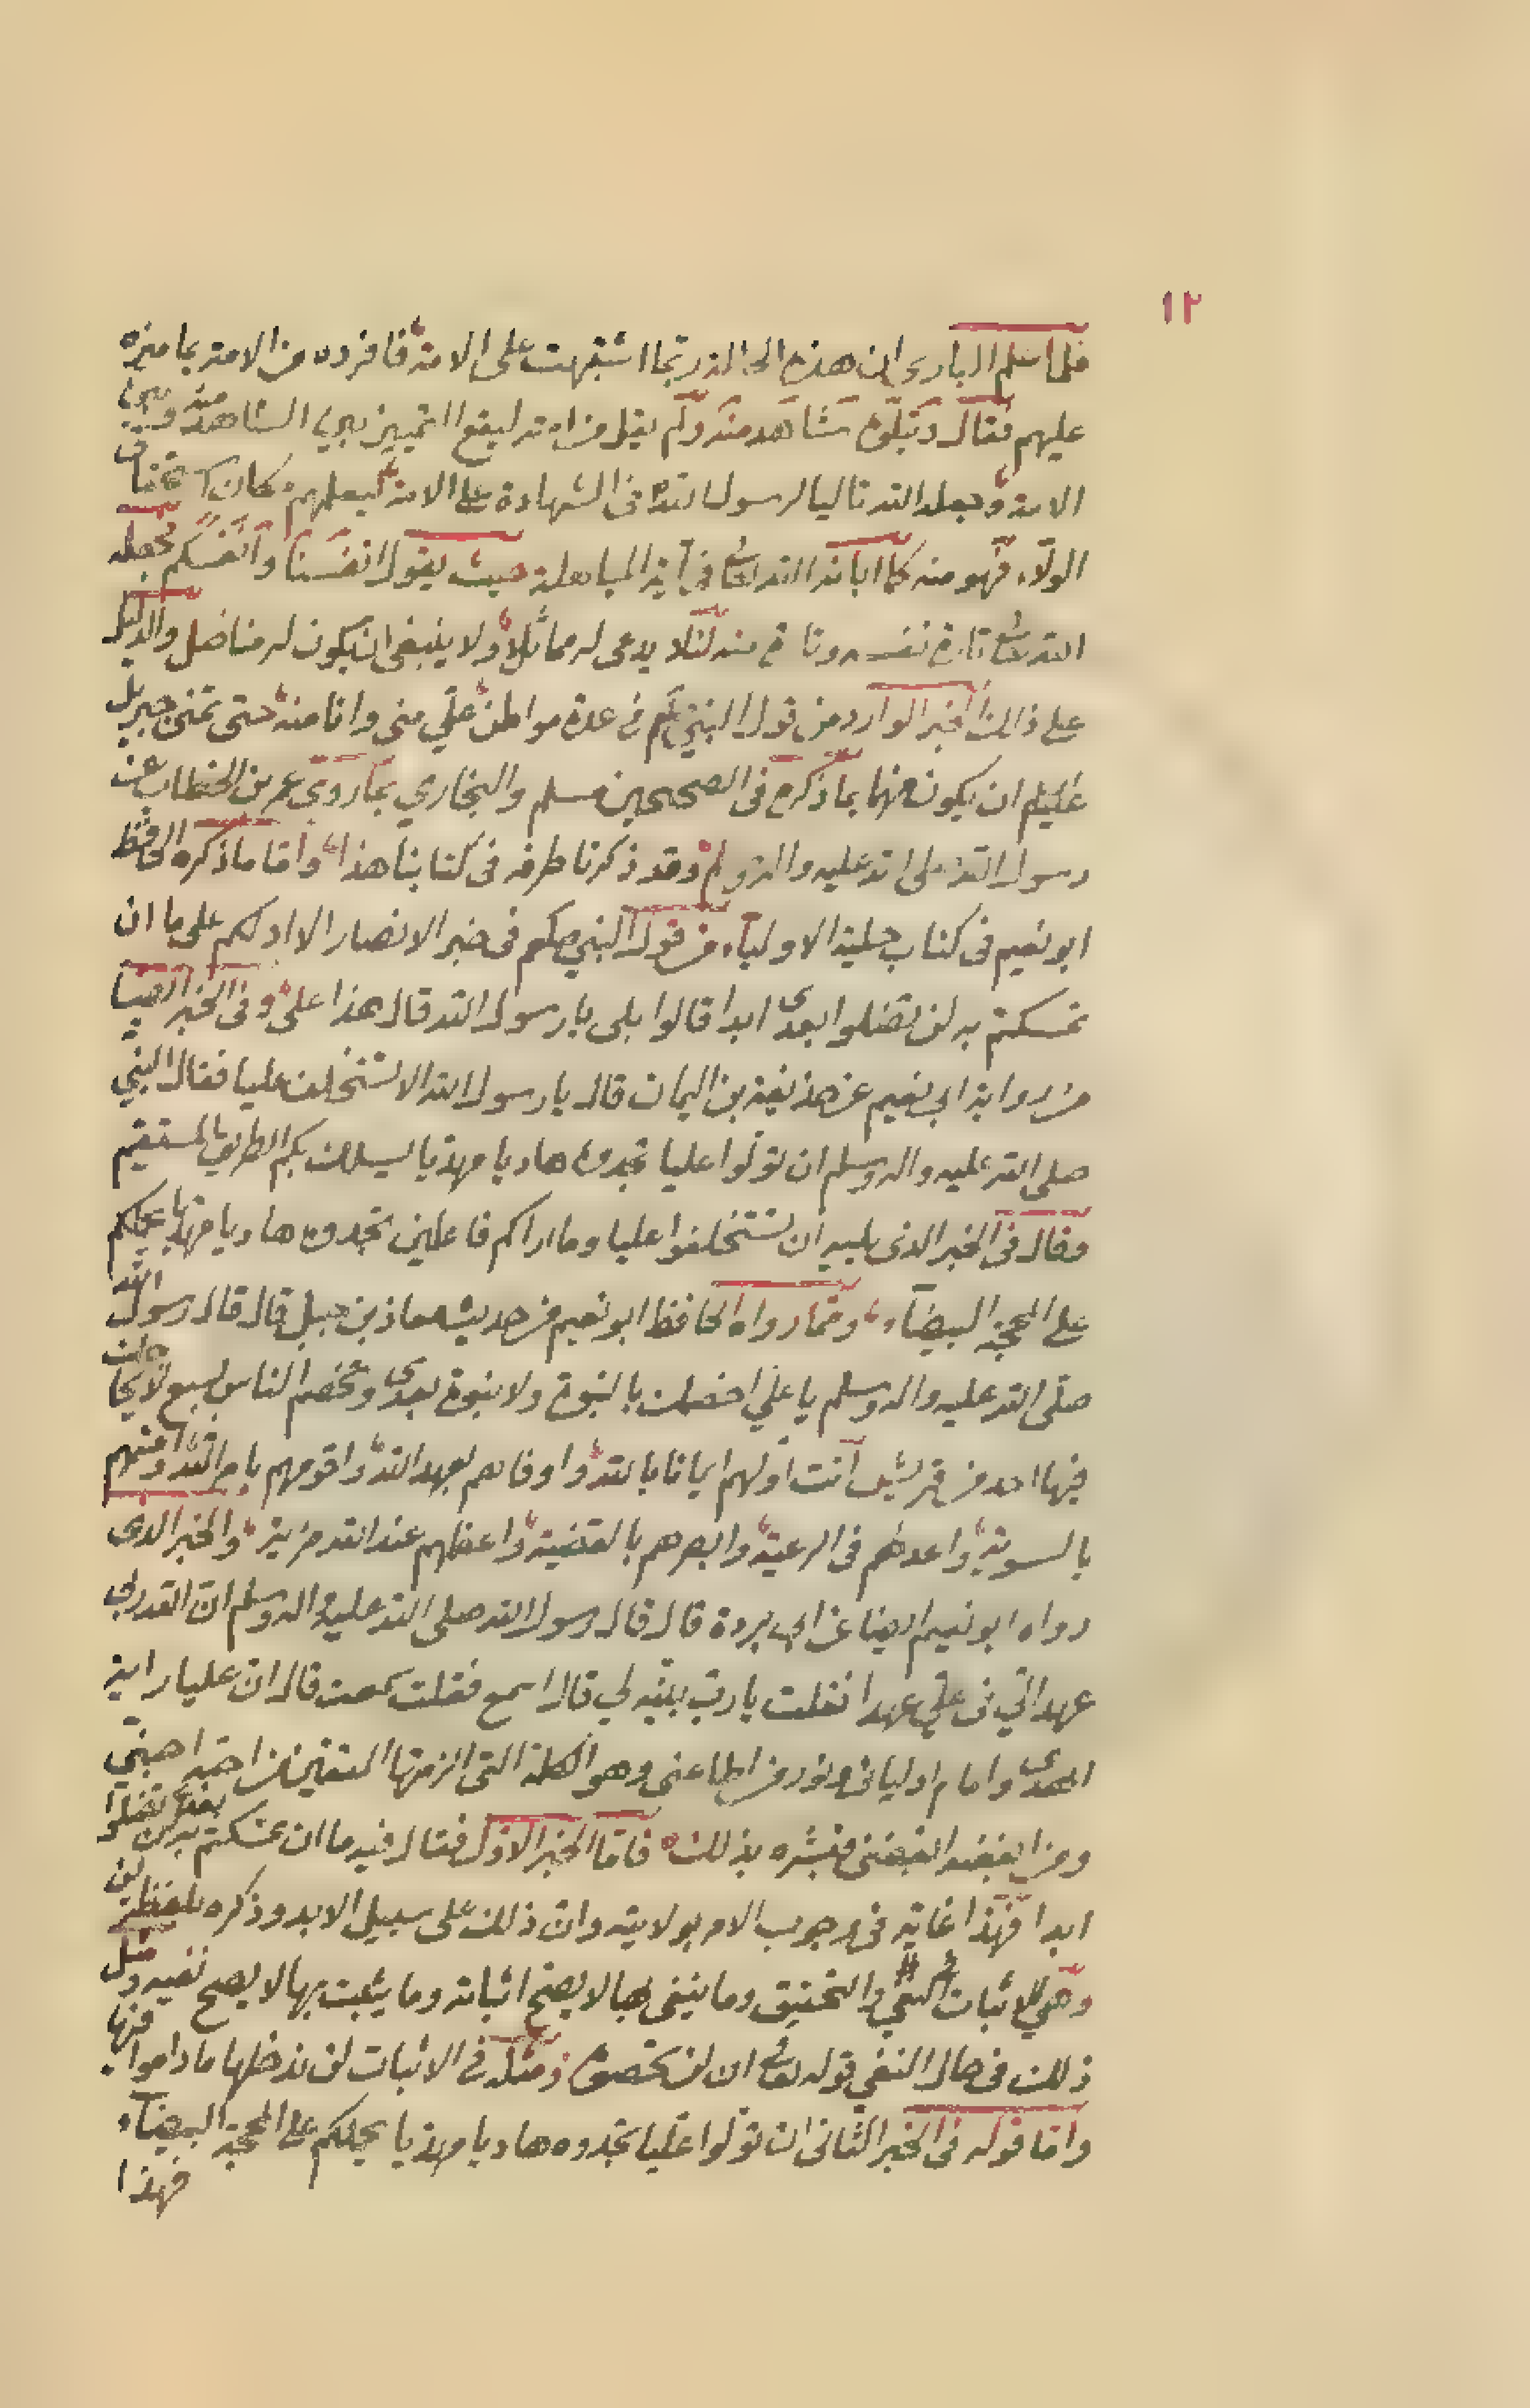 ١٢
فلما علم البارى ان هذه الحالة ربما اشتبهت على الامة فافرده من الامة بما ميزه
عليهم فقال ويتلوه شاهد منه ولم يقل من امته ليقع التمييز بين الشاهد منه وبين
الامة وجعله الله تاليا لرسول الله فى الشهادة على الامة ليعلمهم مكان استحقاق
الولاء فهو منه كما ابانه الله تعالى فى آية المباهلة حيث يقول انفسنا وانفسكم فجعله
الله تعالى تارة نفسه وتارة منه لئلا يدعى له مماثل ولا ينبغى ان يكون له مفاضل والدليل
على ذلك الخبر الوارد من قول النبى صلعم فى عدة مواطن على منى وانا منه حتى تمنى جبريل
عليلم ان يكون منهما بما ذكره فى الصحيحين مسلم والبخاري بما روى عمر بن الخطاب عن
رسول الله صلى الله عليه واله وسلم وقد ذكرنا طرفه فى كتابنا هذا واما ما ذكره الحافظ
ابو نعيم فى كتاب حلية الاولياء من قول النبى صلعم فى خبر الانصار الا ادلكم على ما ان
تمسكتم به لن تضلوا بعدى ابدا قالوا بلى يا رسول الله قال هذا على وفى الخبر ايضا
من رواية ابى نعيم عن حذيفة بن اليمان قال يا رسول الله الا تستخلف عليا فقال النبى
صلى الله عليه واله وسلم ان تولوا عليا تجدوه هاديا مهديا يسلك بكم الطريق المستقيم
وقال فى الخبر الذى يليه ان تستخلفوا عليا وما اراكم فاعلين تجدوه هاديا مهديا يحملكم
على المحجة البيضاء ومما رواه الحافظ ابو نعيم من حديث معاذ بن جبل قال قال رسول الله
صلى الله عليه واله وسلم يا على اخصمك بالنبوة ولا نبوة بعدى وتخصم الناس بسبع لا يحاجك
فيها احد من قريش انت اولهم ايمانا بالله واوفاهم بعهد الله واقومهم بامر الله واقسمهم
بالسوية واعدلهم فى الرعية وابصرهم بالقضية واعظمهم عند الله مزية والخبر الذى
رواه ابو نعيم ايضا عن ابى بردة قال قال رسول الله صلى الله عليه واله وسلم ان الله ربى
عهد الي فى علي عهدا فقلت يا رب بينه لي قال اسمع فقلت سمعت قال ان عليا راية
الهدى وامام اوليائى ونور من اطاعنى وهو الكلمة التى الزمتها المتقين من احبه احبنى
ومن ابغضه ابغضنى فبشره بذلك فاما الخبر الاول فقال فيه ما ان تمسكتم به لن تضلوا بعدى
ابدا فهذا غاية فى وجوب الامر بولايته وان ذلك على سبيل الابد وذكره بلفظة لن
وهي للاثبات النفي والتحقيق وما ينفى بها لا يصح اثباته وما يثبت بها لا يصح نفيه ومثل
ذلك فى حال النفى قوله تعالى ان لن تحصوه ومثله فى الاثبات لن ندخلها ما داموا فيها
واما قوله فى الخبر الثانى ان تولوا عليا تجدوه هاديا مهديا يحملكم على المحجة البيضاء
فهذا